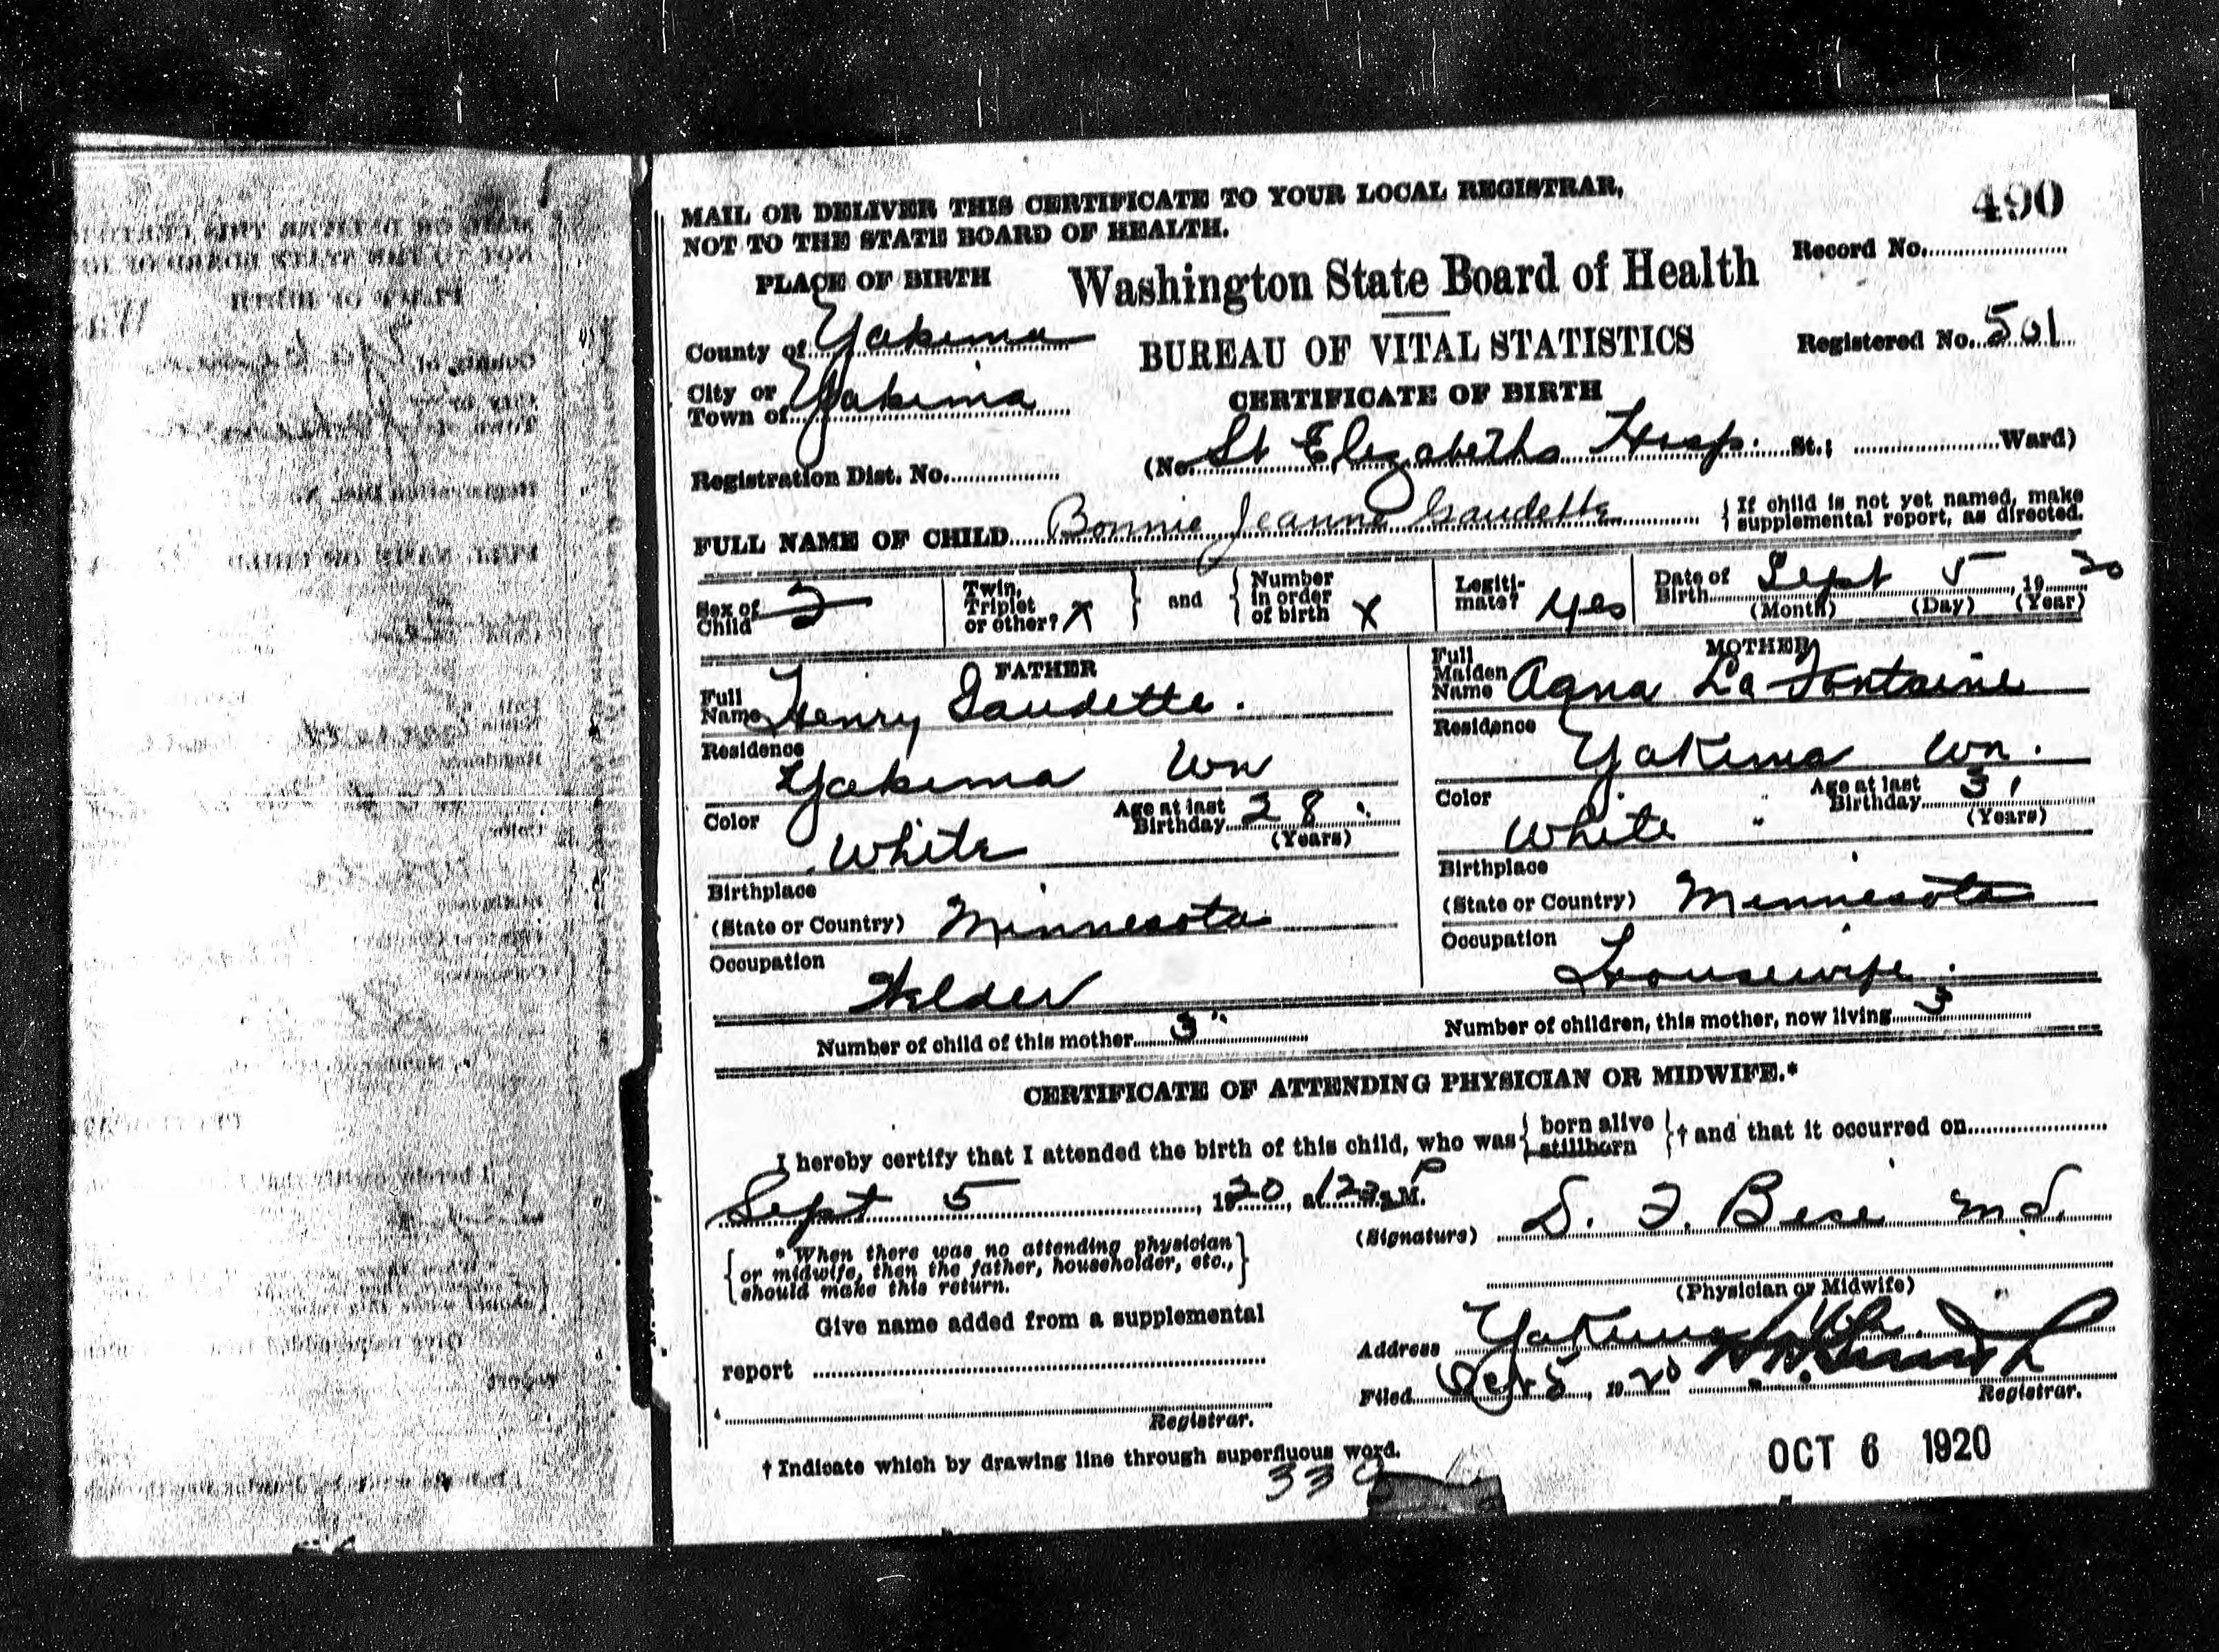 MAIL OR DELIVER THIS CERTIFICATE TO YOUR LOCAL REGISTRAR,
NOT TO THE STATE BOARD OF HEALTH.
490
Record No.
PLACE OF BIRTH
Washington State Board of Health
County of Yakima
BUREAU OF VITAL STATISTICS
Registered No. 501
City or Town of Yakima
CERTIFICATE OF BIRTH
Registration Dist. No.
(No. St Elizabeths Hosp. St.; Ward)
FULL NAME OF CHILD Bonnie Jeanne Gaudette
If child is not yet named, make
supplemental report, as directed.
Sex of Child
Twin, Triplet or other? X
and
Number in order of birth X
Legiti-mate? yes
Date of Birth Sept 5, 1920
(Month) (Day) (Year)
FATHER
Full Name Henry Gaudette.
Residence
Yakima Wn
Color White
Age at last Birthday 28
(Years)
Birthplace
(State or Country) Minnesota
Occupation
Welder
MOTHER
Full Maiden Name La Fontaine
Residence
Yakima Wn.
Color White
Age at last Birthday 31
(Years)
Birthplace
(State or Country) Minnesota
Occupation
Housewife.
Number of child of this mother 3
Number of children, this mother, now living 3
CERTIFICATE OF ATTENDING PHYSICIAN OR MIDWIFE.*
I hereby certify that I attended the birth of this child, who was { born alive stillborn } † and that it occurred on
Sept 5, 1920, at P M.
(Signature) S. F. M.D.
* When there was no attending physician
or midwife, then the father, householder, etc.,
should make this return.
(Physician or Midwife)
Give name added from a supplemental
report
Registrar.
Address Yakima
Filed Oct 5, 1920
Registrar.
† Indicate which by drawing line through superfluous word.
OCT 6 1920